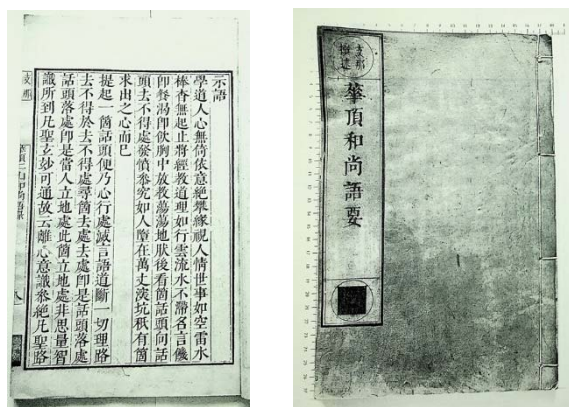 示語
學道人心無倚依意絕攀緣視人情世事如空雷水
棒杳無起止將經教道理如行雲流水不滯名言饑
卽餐渴卽飲胸中放教蕩蕩地狀後看箇話頭向話
頭去不得處發憤叅究如人墮在萬丈深坑秖有箇
求出之心而已
提起一箇話頭便乃心行處滅言語道斷一切理路
去不得於去不得處尋箇去處去處卽是話頭落處
話頭落處卽是當人立地處此箇立地處非思量智
識所到凡聖玄妙可通故云離心意識叅絕凡聖路
支那
八
支那
撰述
華頂和尚語要